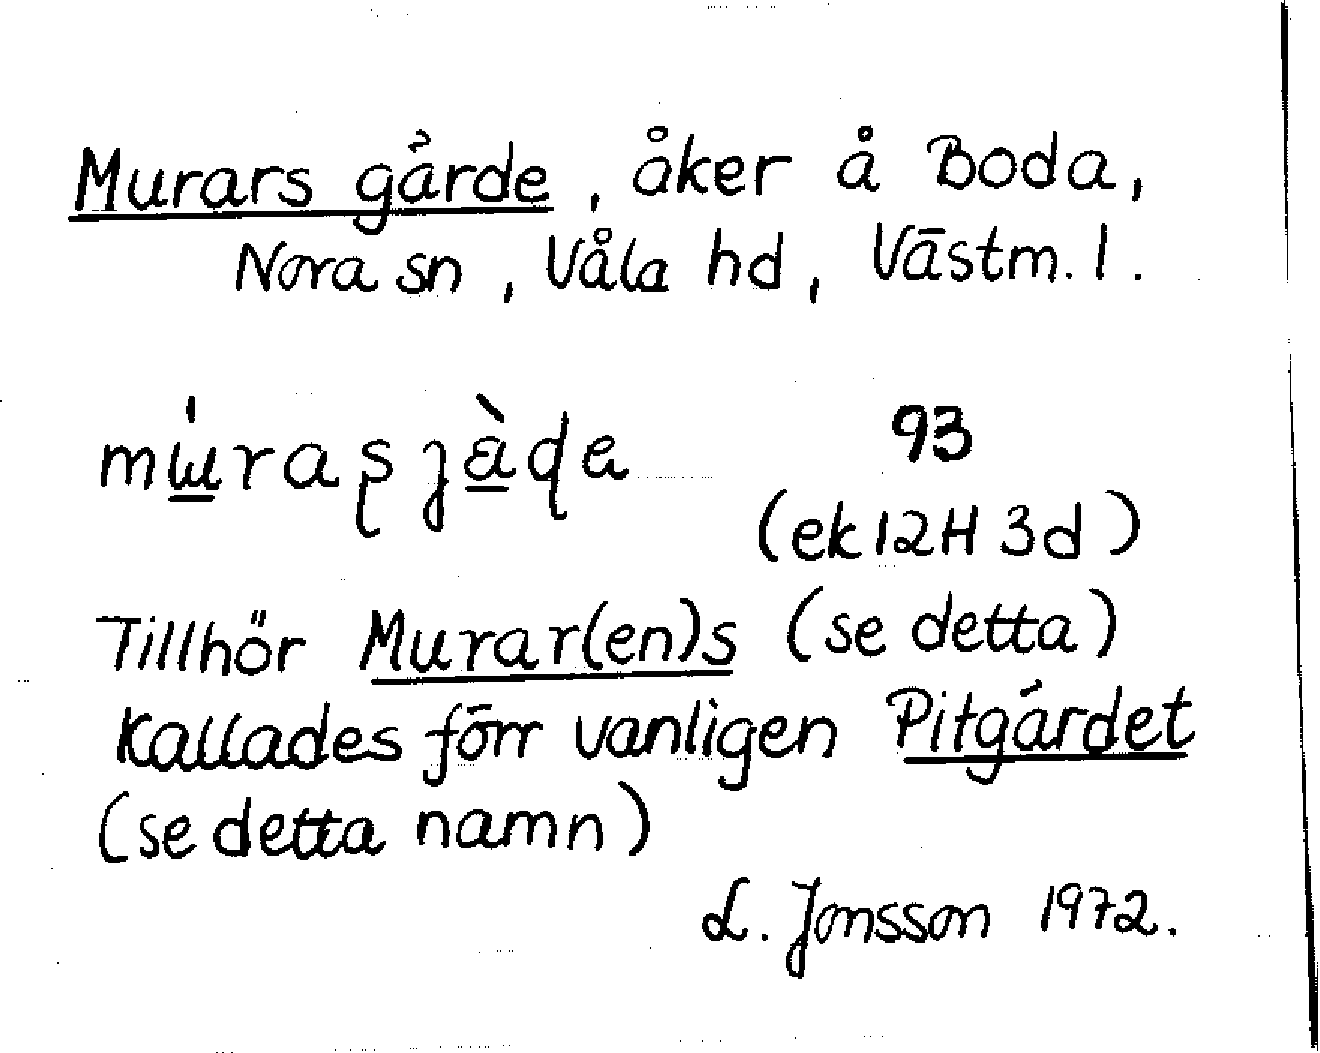 Murars gärde, åker å Boda,
Nora sn, Våla hd, Västm. l.
93
(ek 12H 3d)
Tillhör Murar(en)s (se detta)
Kallades förr vanligen Pitgärdet
(se detta namn)
L. Jonsson 1972.